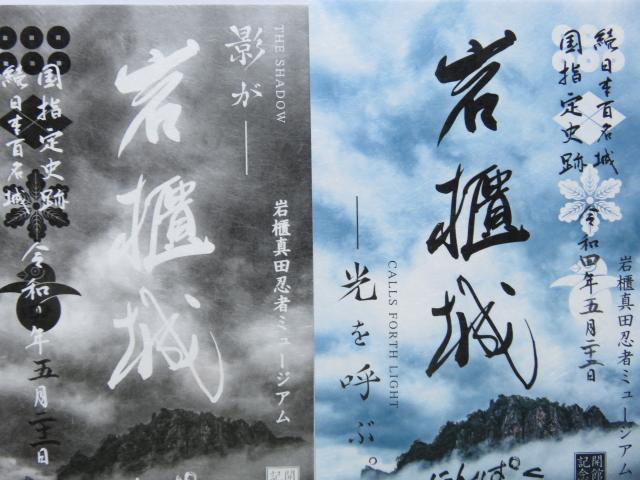 THE SHADOW
影が――
岩櫃真田忍者ミュージアム
岩櫃城
国指定史跡
続日本百名城
令和 年五月二十二日
開館
続日本百名城
国指定史跡
令和四年五月二十二日
岩櫃真田忍者ミュージアム
岩櫃城
CALLS FORTH LIGHT
――光を呼ぶ。
開館
記念